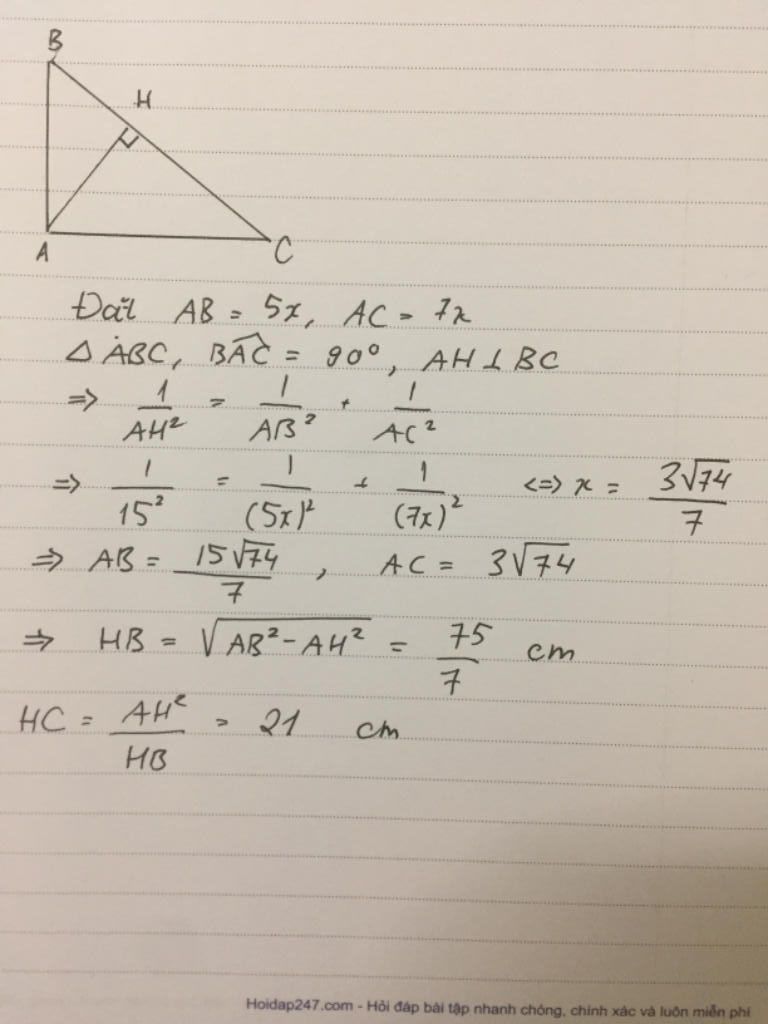 B
H
A
C
Đặt AB = 5x, AC = 7x
△ ABC, BAC^ = 90°, AH ⊥ BC
=> 1/AH² = 1/AB² + 1/AC²
=> 1/15² = 1/(5x)² + 1/(7x)² <=> x = 3√74/7
=> AB = 15√74/7, AC = 3√74
=> HB = √(AB² - AH²) = 75/7 cm
HC = AH²/HB = 21 cm
Hoidap247.com - Hỏi đáp bài tập nhanh chóng, chính xác và luôn miễn phí